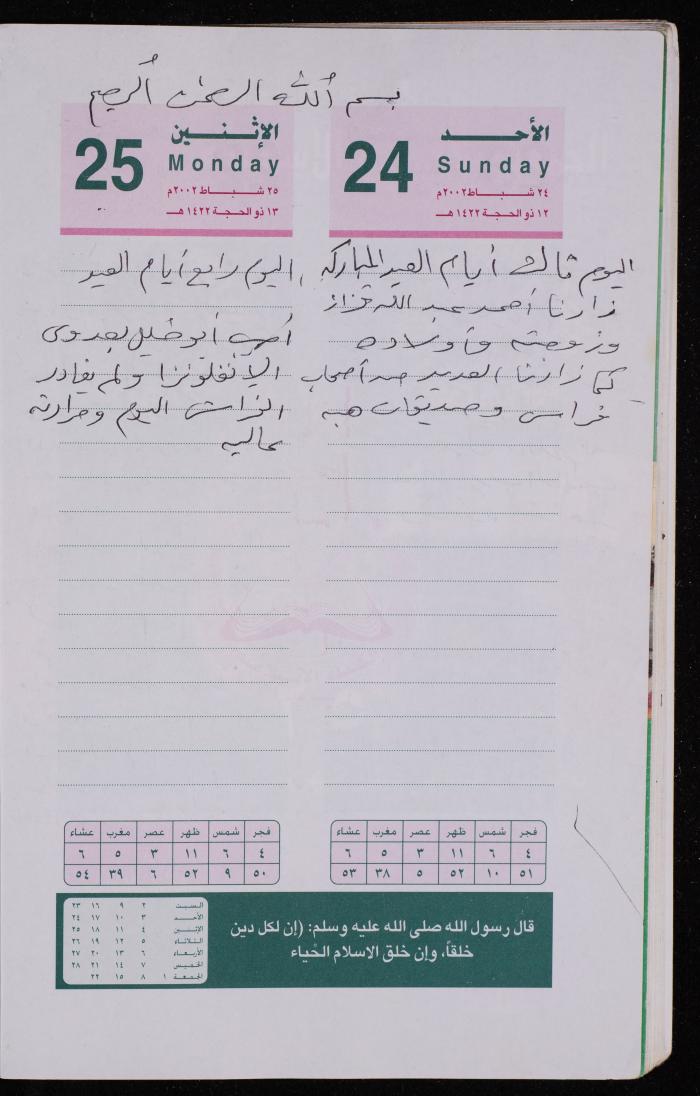 بسم الله الرحمن الرحيم
الأحد
24
Sunday
٢٤ شباط ٢٠٠٢م
١٢ ذو الحجة ١٤٢٢هـ
اليوم ثالث أيام العيد المباركه
زارنا أحمد عبد الله قزاز
وزوجته وأولاده
كما زارنا العديد من أصحاب
فراس وصديقات هبه
الإثنين
25
Monday
٢٥ شباط ٢٠٠٢م
١٣ ذو الحجة ١٤٢٢هـ
اليوم رابع أيام العيد
أصيب أبو خليل بعدوى
الإنفلونزا ولم يغادر
الفراش اليوم وحرارته
عاليه
فجر شمس ظهر عصر مغرب عشاء
٤ ٦ ١١ ٣ ٥ ٦
٥١ ١٠ ٥٢ ٥ ٣٨ ٥٣
فجر شمس ظهر عصر مغرب عشاء
٤ ٦ ١١ ٣ ٥ ٦
٥٠ ٩ ٥٢ ٦ ٣٩ ٥٤
قال رسول الله صلى الله عليه وسلم: (إن لكل دين
خلقاً، وإن خلق الاسلام الحياء
السبت ٢ ٩ ١٦ ٢٣
الأحد ٣ ١٠ ١٧ ٢٤
الإثنين ٤ ١١ ١٨ ٢٥
الثلاثاء ٥ ١٢ ١٩ ٢٦
الأربعاء ٦ ١٣ ٢٠ ٢٧
الخميس ٧ ١٤ ٢١ ٢٨
الجمعة ١ ٨ ١٥ ٢٢